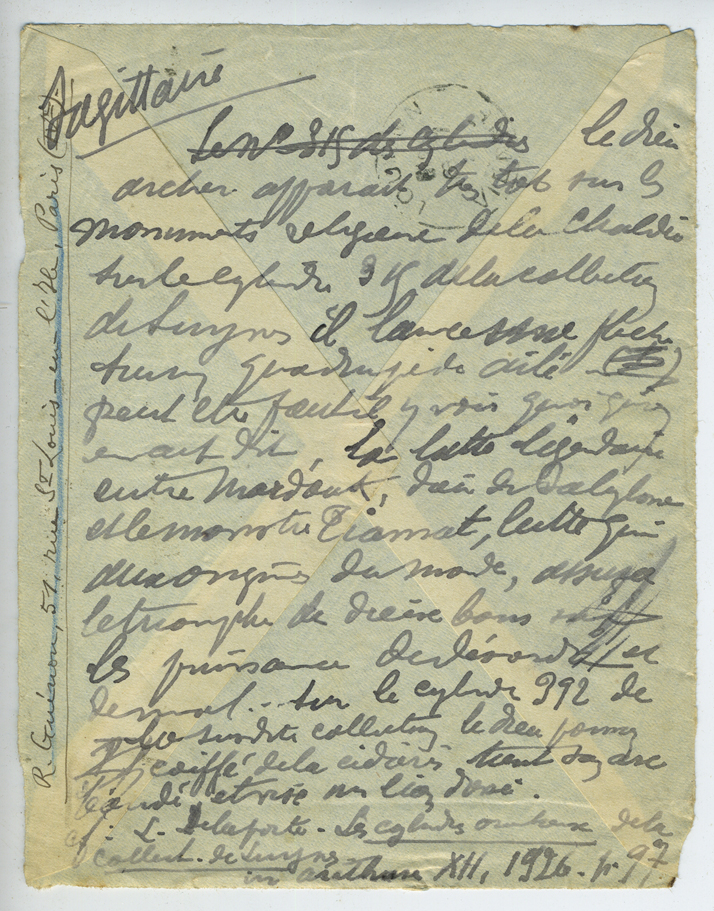 Sagittaire
Le N° 315 des cylindres le dieu
archer apparait très tôt sur les
monuments religieux de la Chaldée
sur le cylindre 315 de la collection
de Luynes il lance une flèche
sur un quadrupède ailé
peut être faut-il y voir
en ait dit, la lutte légendaire
entre Mardouk, dieu de Babylone
et le monstre Tiamat, lutte qui
aux origines du monde, assura
le triomphe de dieux bons sur
les puissances de désordre et
de mal... Sur le cylindre 392 de
la susdite collection le dieu
coiffé de la cidaris tient son arc
bandé et vise un lion
cf. L. Delaporte - Les cylindres orientaux de la
collect. de Luynes
in Aréthuse XII, 1926. p. 97
R. Guénon, 51, rue St Louis-en-l'Ile, Paris